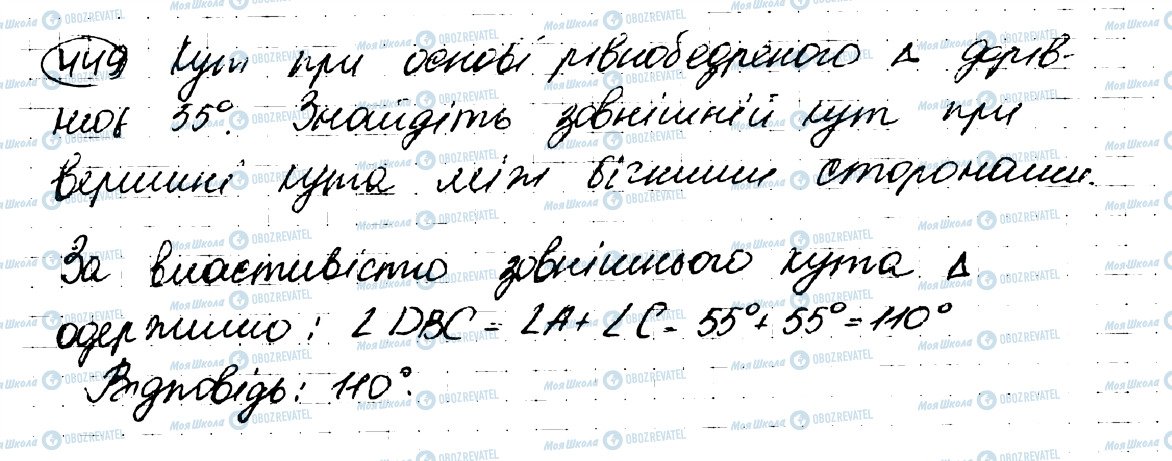 449 Кут при основі рівнобедреного Δ дорів-
нює 55°. Знайдіть зовнішній кут при
вершині кута між бічними сторонами.
За властивістю зовнішнього кута Δ
одержимо: ∠DBC = ∠A + ∠C = 55° + 55° = 110°
Відповідь: 110°.